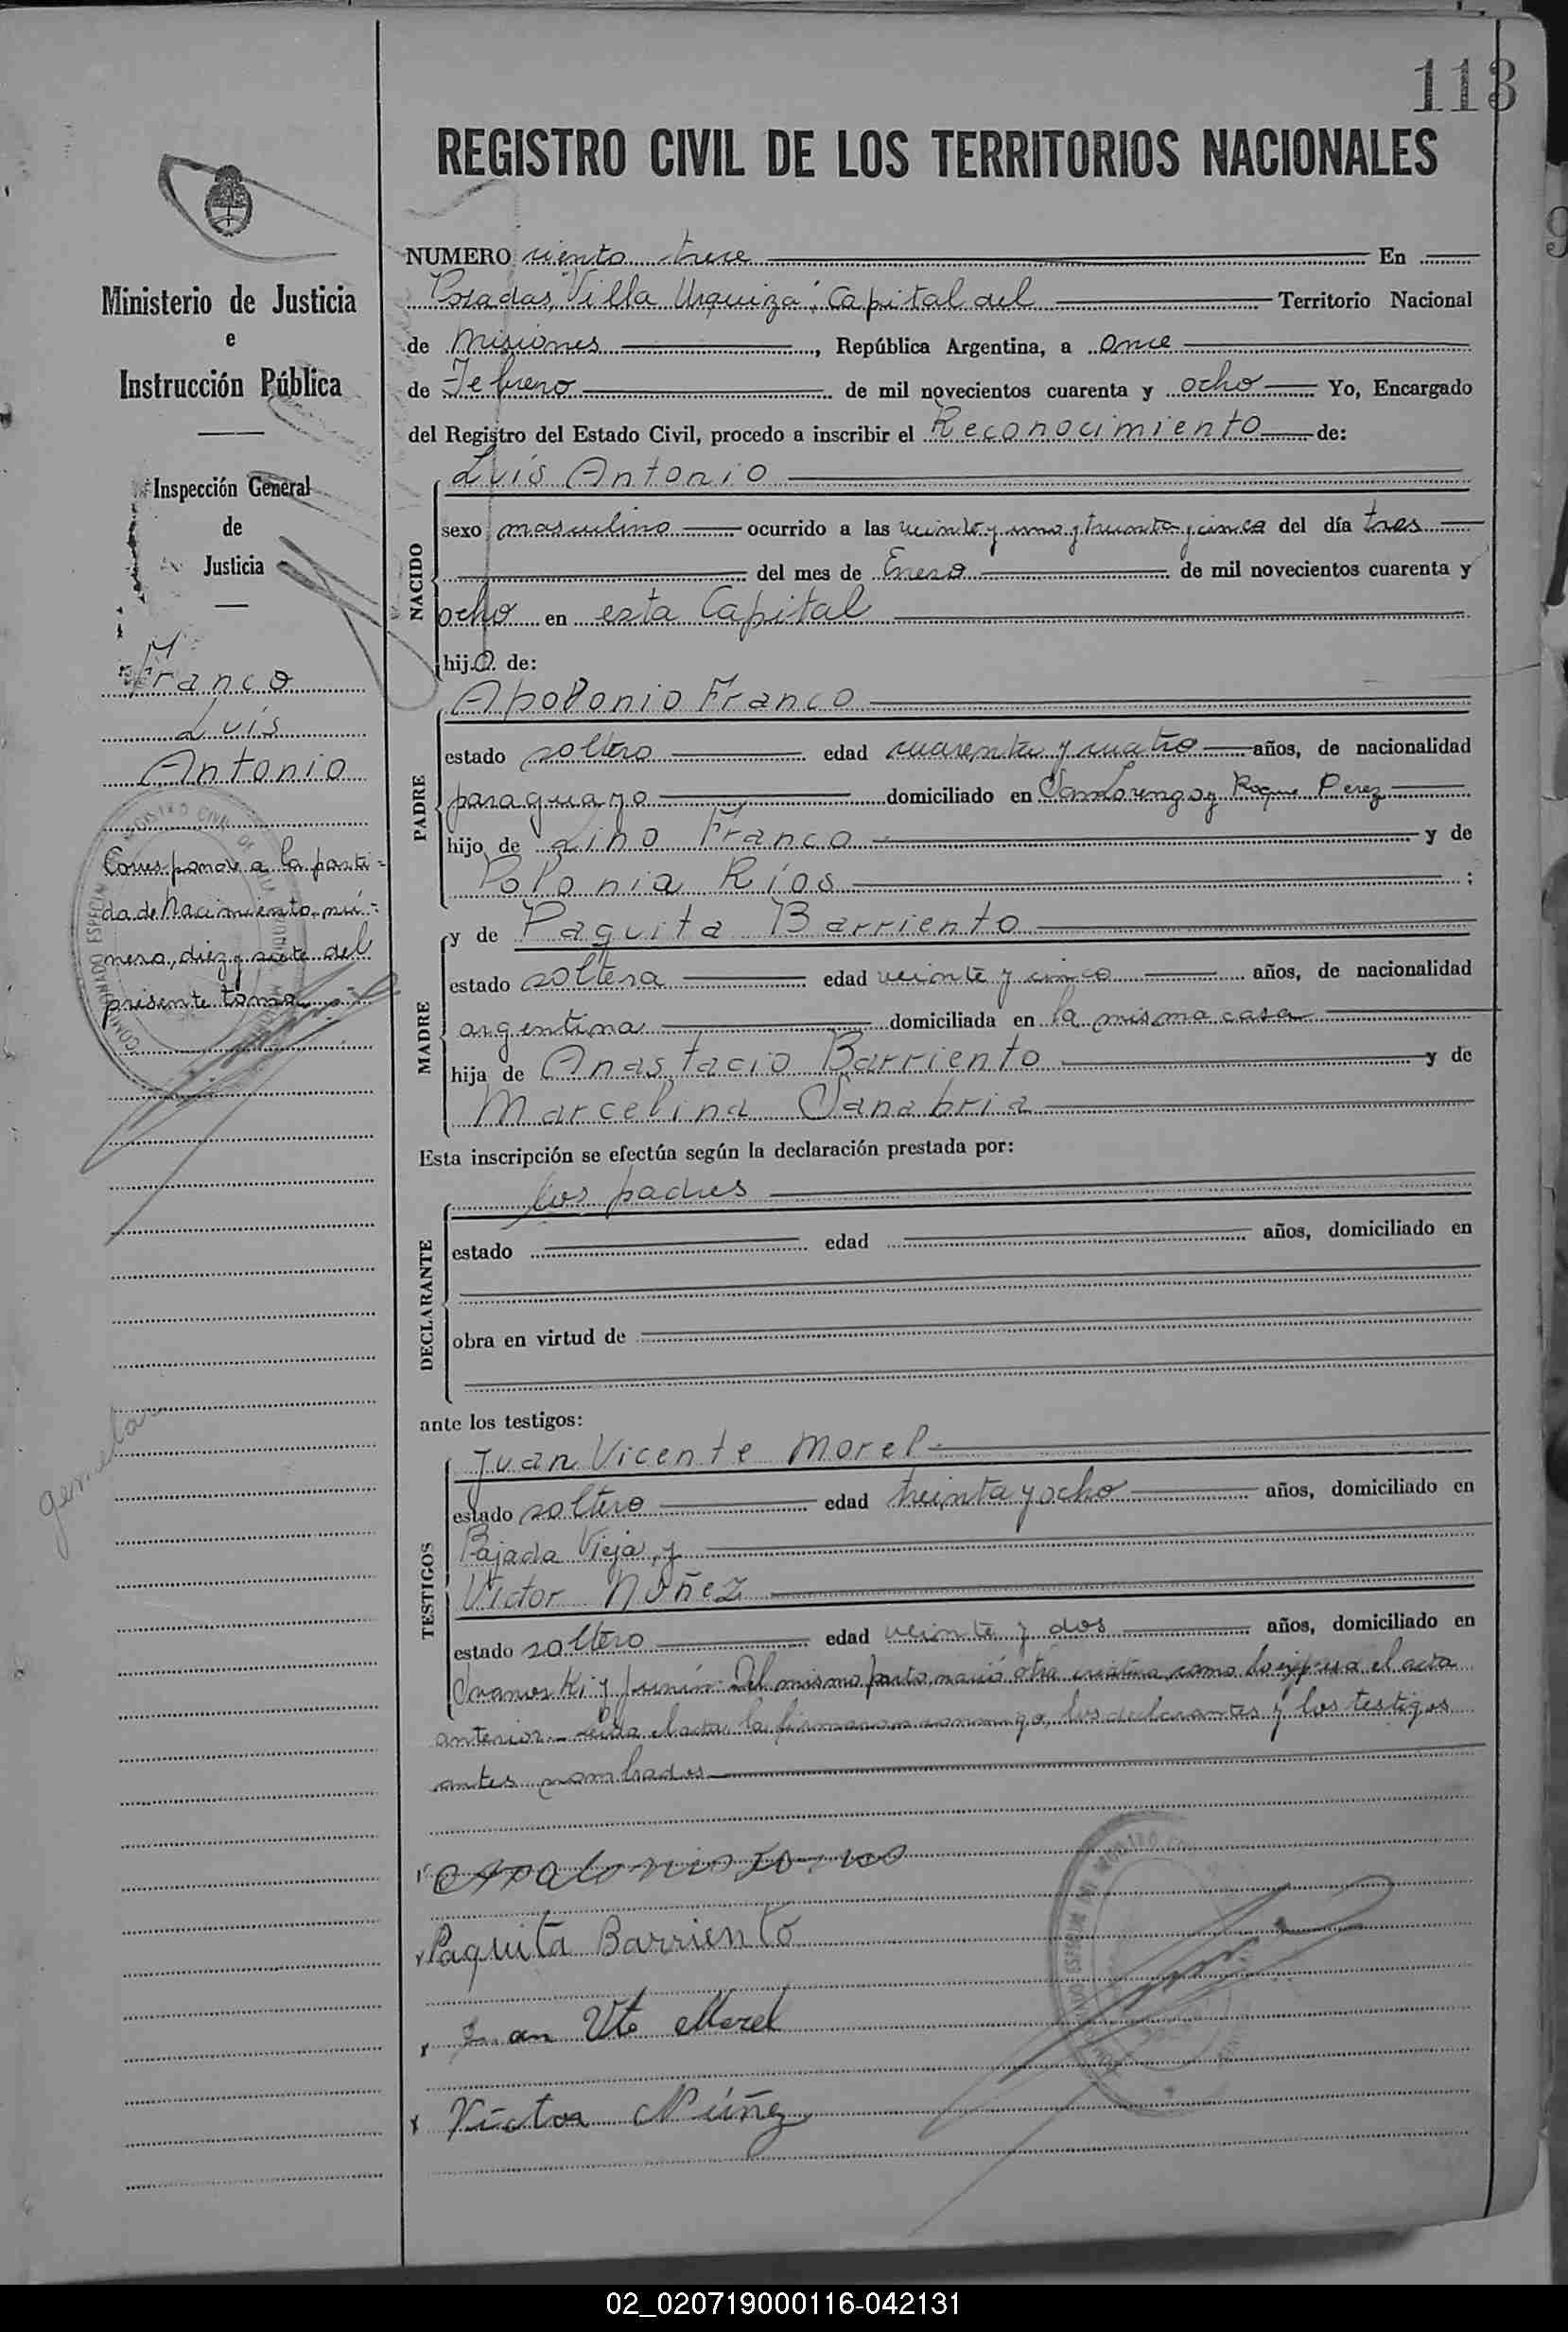 113
REGISTRO CIVIL DE LOS TERRITORIOS NACIONALES
Ministerio de Justicia
e
Instrucción Pública
Inspección General
de
Justicia
M
Franco
Luis
Antonio
Corresponde a la parti=
da de Nacimiento nú=
mero, diez y siete del
presente tomo
gemelar
NUMERO ciento trece En
Posadas, Villa Urquiza, Capital del Territorio Nacional
de Misiones, República Argentina, a once
de Febrero de mil novecientos cuarenta y ocho Yo, Encargado
del Registro del Estado Civil, procedo a inscribir el Reconocimiento de:
NACIDO
Luis Antonio
sexo masculino ocurrido a las veinte y una y treinta y cinco del día tres
del mes de Enero de mil novecientos cuarenta y
ocho en esta Capital
hijo de:
PADRE
Apolonio Franco
estado soltero edad cuarenta y cuatro años, de nacionalidad
paraguayo domiciliado en San Lorenzo y Roque Perez
hijo de Lino Franco y de
Polonia Ríos ;
MADRE
y de Paquita Barriento
estado soltera edad veinte y cinco años, de nacionalidad
argentina domiciliada en la misma casa
hija de Anastacio Barriento y de
Marcelina Sanabria
Esta inscripción se efectúa según la declaración prestada por:
DECLARANTE
los padres
estado edad años, domiciliado en
obra en virtud de
ante los testigos:
TESTIGOS
Juan Vicente Morel
estado soltero edad treinta y ocho años, domiciliado en
Bajada Vieja, y
Víctor Núñez
estado soltero edad veinte y dos años, domiciliado en
y Junín. Del mismo parto nació otra criatura, como lo expresa el acta
anterior. Leída el acta la firmaron conmigo, los declarantes y los testigos
antes nombrados
Apolonio Franco
Paquita Barriento
Juan Vte Morel
Víctor Núñez
02_020719000116-042131